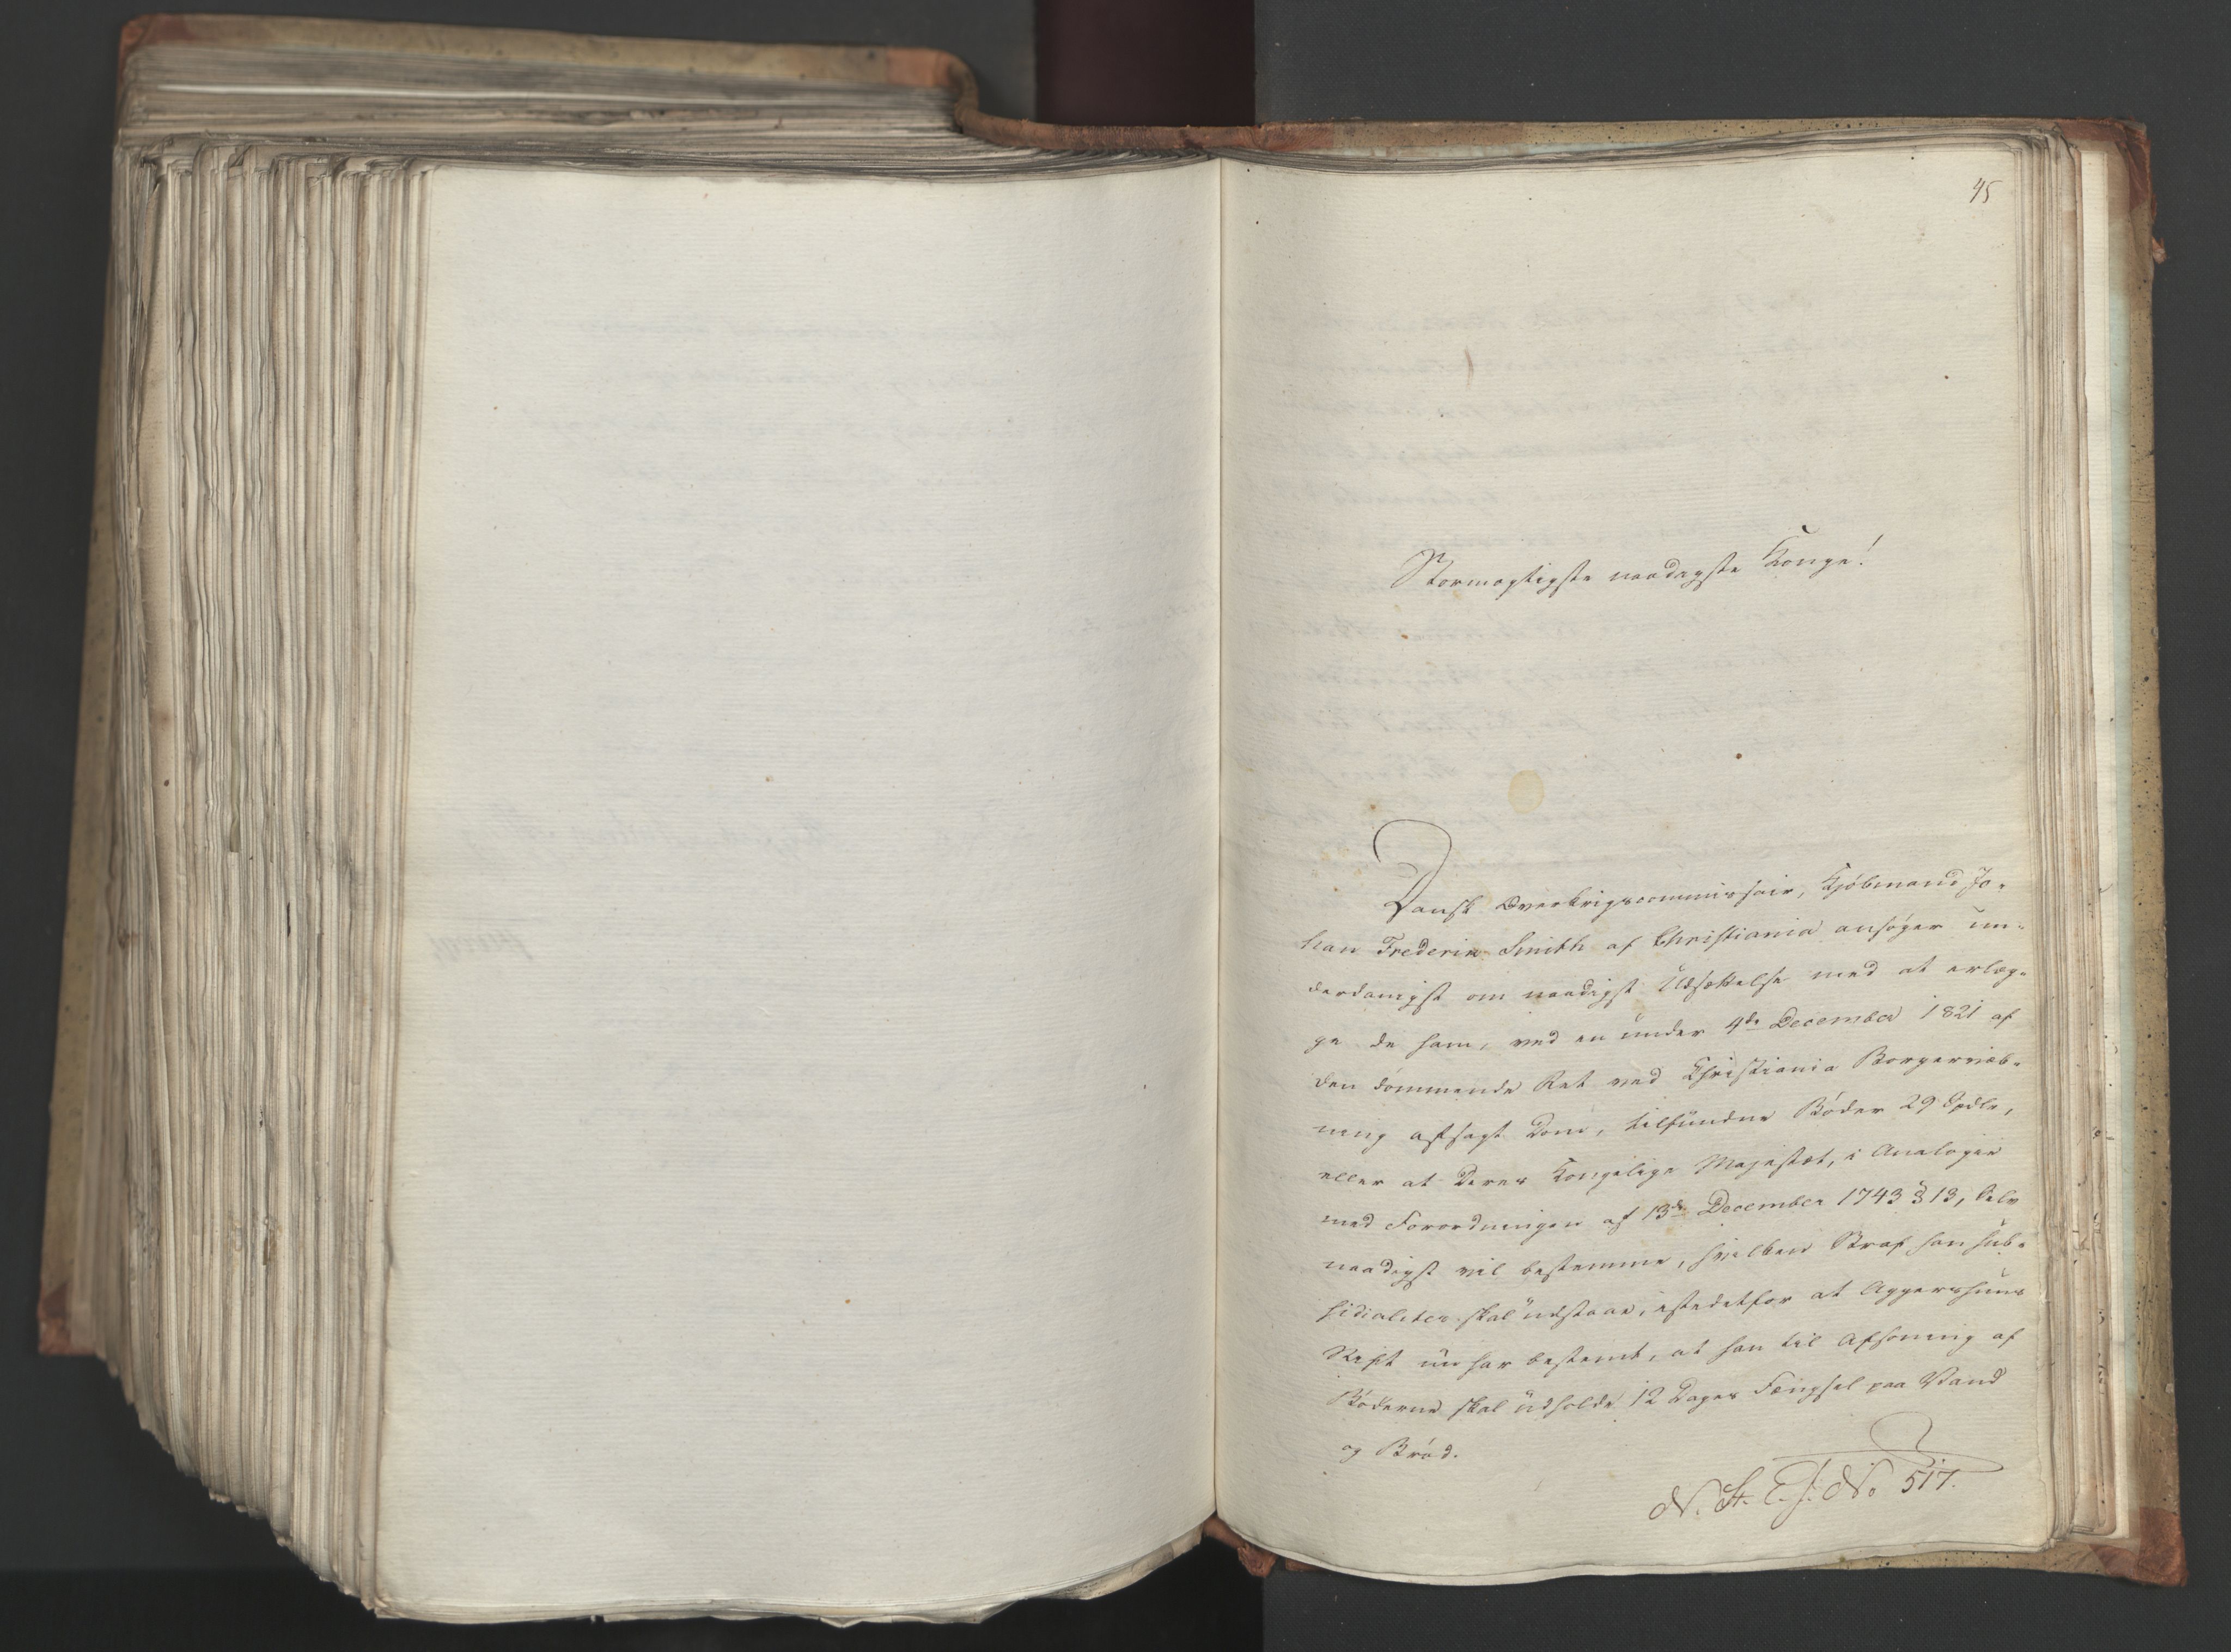 45
Stormægtigste naadigste Konge!
Dansk Overkrigscommissair, Kjöbmand Jo-
han Frederik Smith af Christiania ansöger un-
derdanigst om naadigst Udsættelse med at erlæg-
ge de ham, ved en under 4de December 1821 af
den dömmende Ret ved Christiania Borgervæb-
ning afsagt Dom, tilfundne Böder 29 Spdlr,
eller at Deres Kongelige Majestæt, i Analogie
med Forordningen af 13de December 1743 § 13, selv
naadigst vil bestemme, hvilken Straf han sub-
sidialiter skal udstaae, istedetfor at Aggershuus
Stift nu har bestemt, at han til Afsoning af
Böderne skal udholde 12 Dages Fængsel paa Vand
og Bröd.
N. St. E. J. No 517.